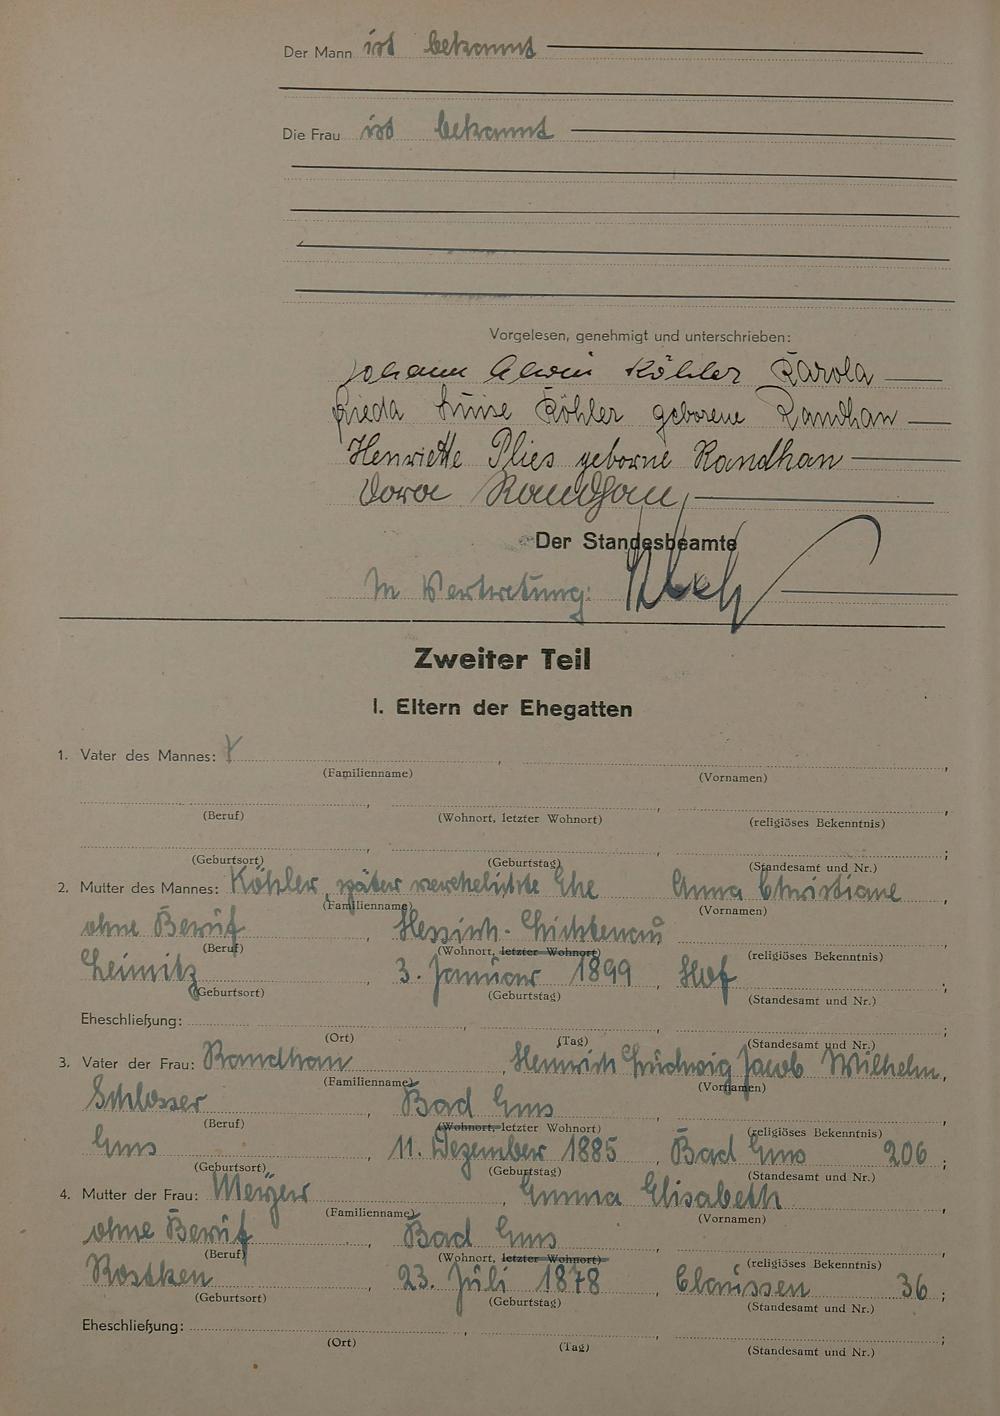 Der Mann ist bekannt
Die Frau ist bekannt
Vorgelesen, genehmigt und unterschrieben:
Johann Erwin Köhler Karola
Frieda Luise Köhler geborene Randhan
Henriette Plies geborne Randhan
Dora Randhan
Der Standesbeamte
In Vertretung:
Zweiter Teil
I. Eltern der Ehegatten
1. Vater des Mannes:
(Familienname) (Vornamen)
(Beruf) (Wohnort, letzter Wohnort) (religiöses Bekenntnis)
(Geburtsort) (Geburtstag) (Standesamt und Nr.)
2. Mutter des Mannes: Köhler, später verehelichte Ehe Anna Christiane,
(Familienname) (Vornamen)
ohne Beruf, Hessisch-Lichtenau
(Beruf) (Wohnort, letzter Wohnort) (religiöses Bekenntnis)
Leimitz, 3. Januar 1899, Hof;
(Geburtsort) (Geburtstag) (Standesamt und Nr.)
Eheschließung:
(Ort) (Tag) (Standesamt und Nr.)
3. Vater der Frau: Randhan, Heinrich Ludwig Jacob Wilhelm,
(Familienname) (Vornamen)
Schlosser, Bad Ems
(Beruf) (Wohnort, letzter Wohnort) (religiöses Bekenntnis)
Ems, 11. Dezember 1885, Bad Ems 206;
(Geburtsort) (Geburtstag) (Standesamt und Nr.)
4. Mutter der Frau: , Emma Elisabeth
(Familienname) (Vornamen)
ohne Beruf, Bad Ems
(Beruf) (Wohnort, letzter Wohnort) (religiöses Bekenntnis)
Rostken, 23. Juli 1878, Claussen 36;
(Geburtsort) (Geburtstag) (Standesamt und Nr.)
Eheschließung:
(Ort) (Tag) (Standesamt und Nr.)